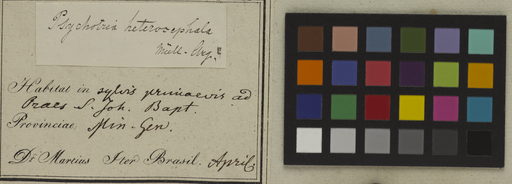 Psychotria heterocephala
Müll. Arg.
Habitat in sylvis primaevis ad
Praes S. Joh. Bapt.
Provinciae Min. Gen.
Dr. Martius Iter Brasil. April.